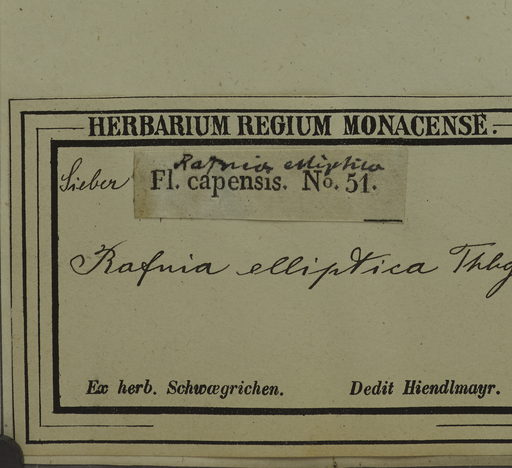 HERBARIUM REGIUM MONACENSE.
Rafnia elliptica
Sieber Fl. capensis. No. 51.
Rafnia elliptica Thbg
Ex herb. Schwægrichen. Dedit Hiendlmayr.